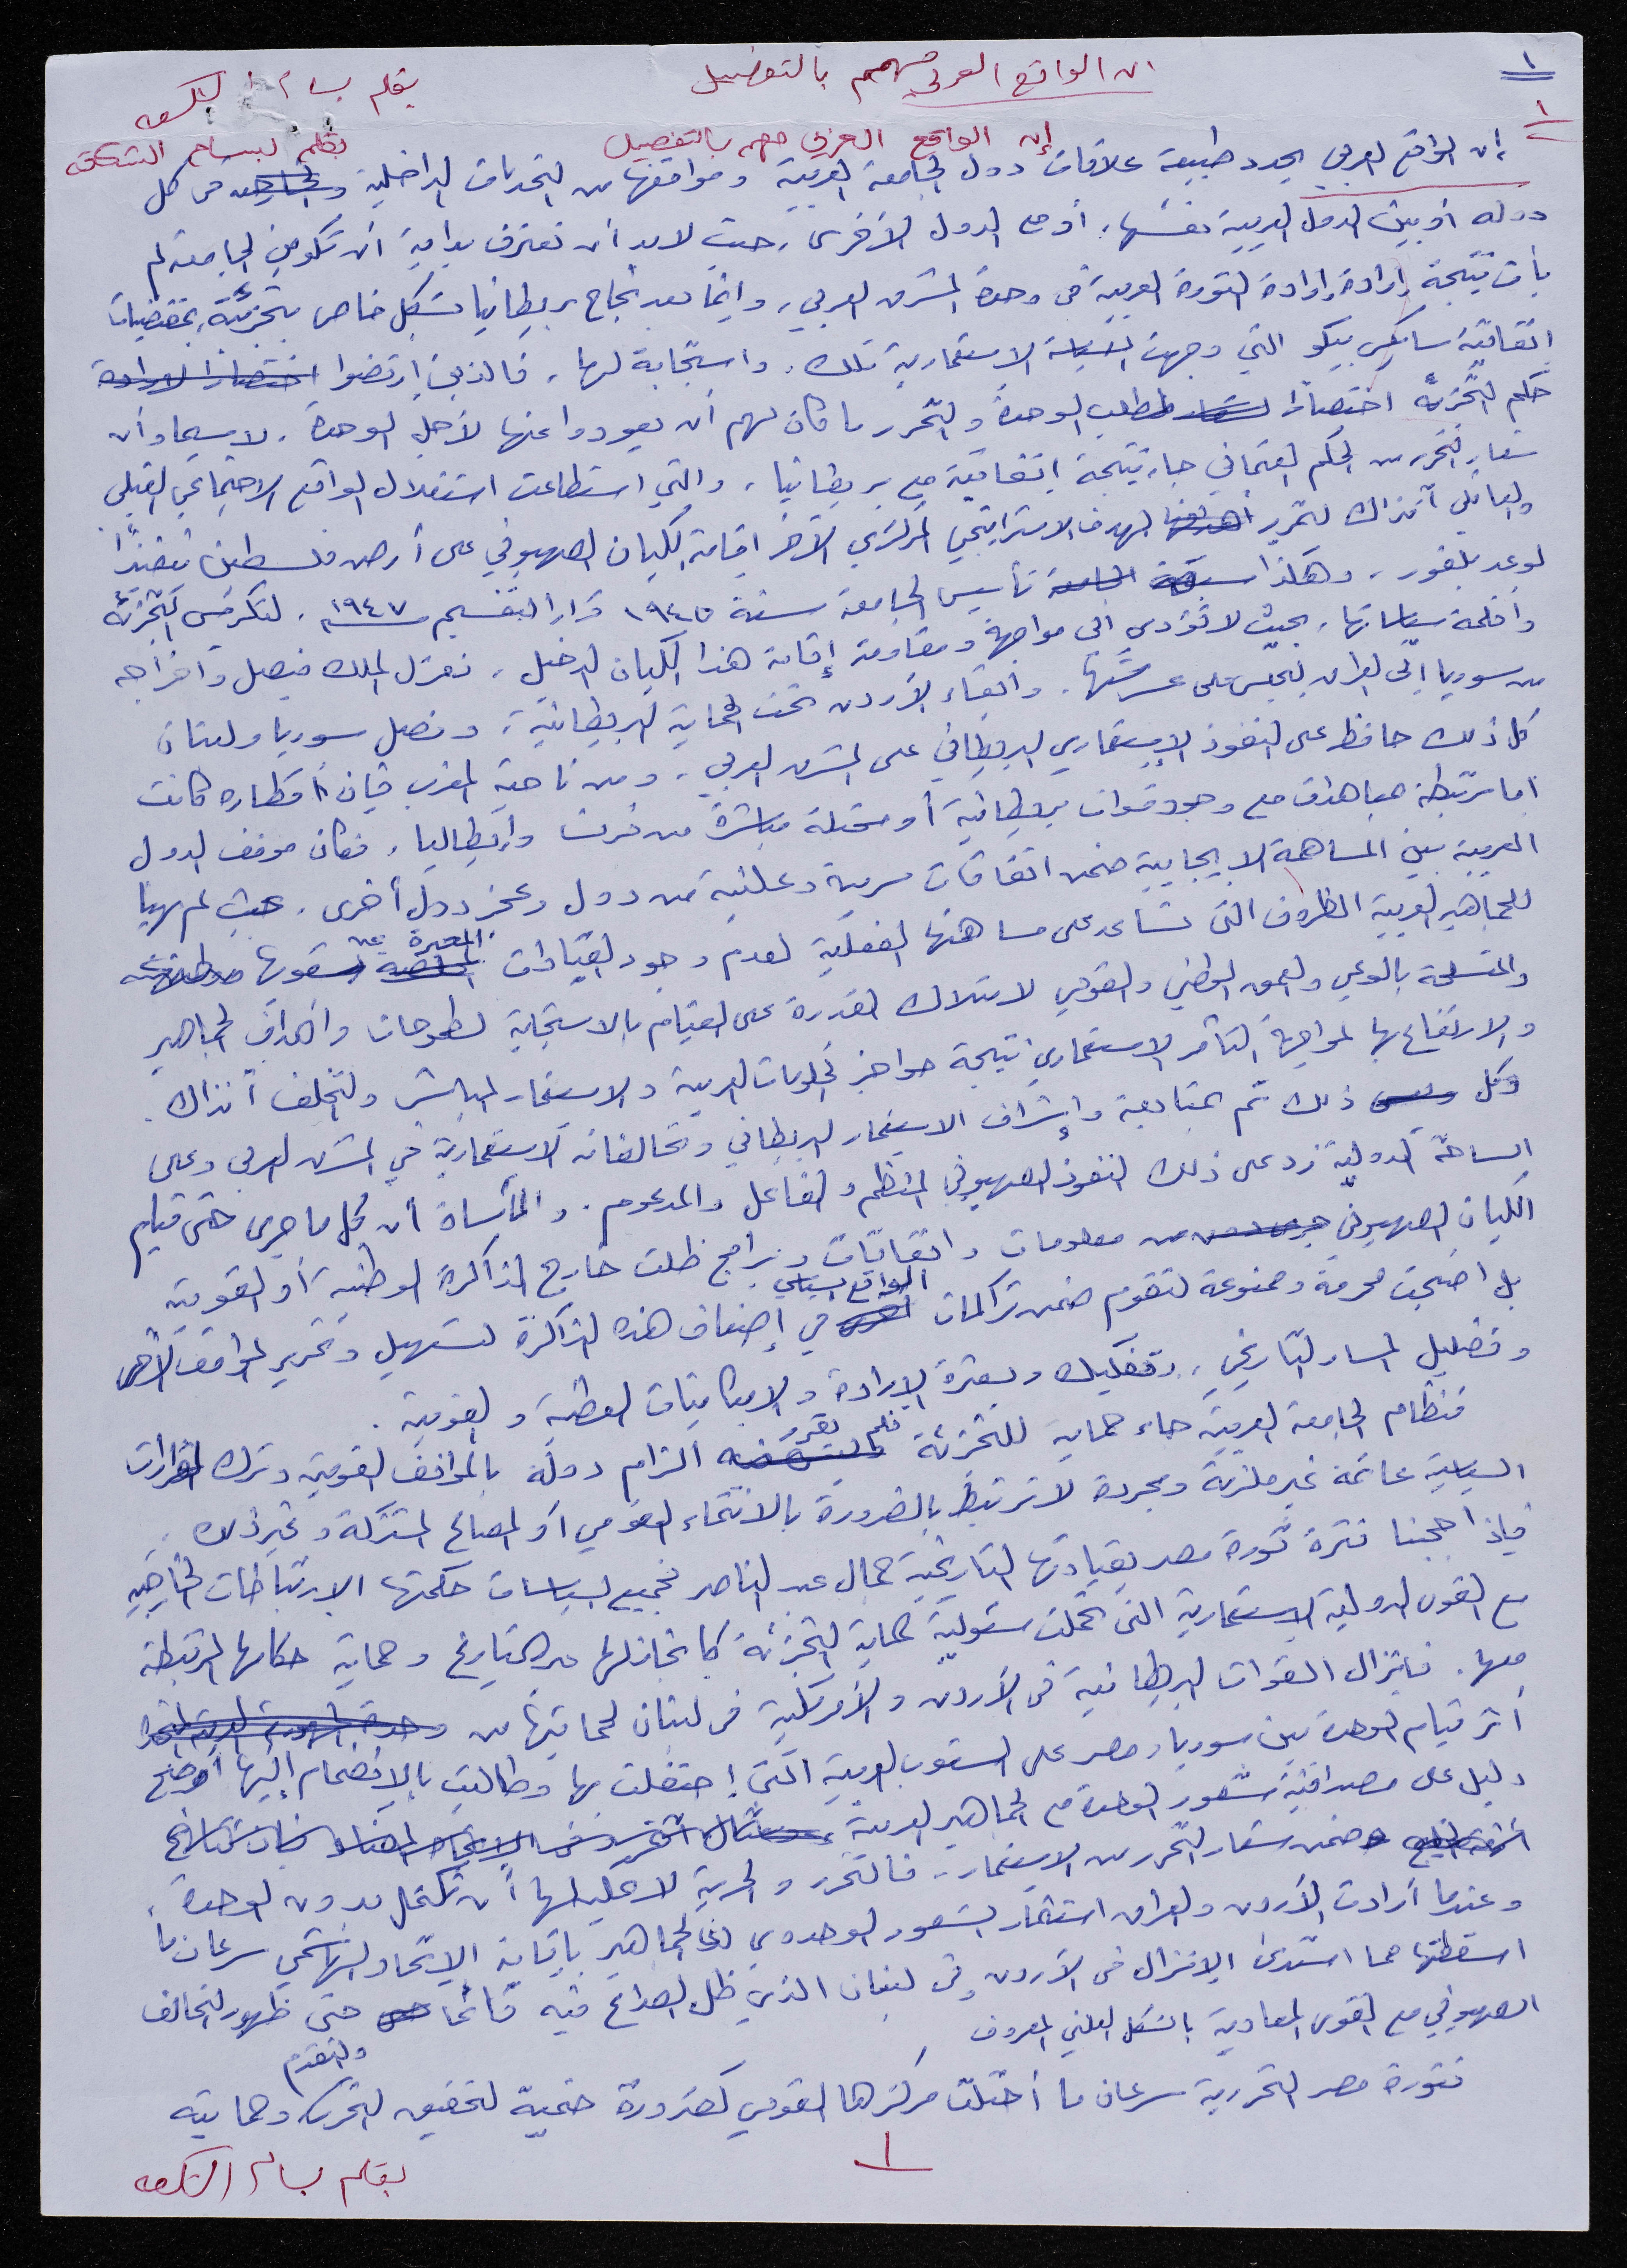 ١
ان الواقع العربي مهم بالتفصيل
بقلم بسام الشكعة
١
إن الواقع العربي مهم بالتفصيل
بقلم بسام الشكعة
إن الواقع العربي يحدد طبيعة علاقات دول الجامعة العربية ومواقفها من التحديات الداخلية والخارجية في كل
دوله أو بين الدول العربية نفسها، أو مع الدول الأخرى، حيث لا بد أن نعترف بداية أن تكوين الجامعة لم
يأت نتيجة إرادة وإرادة الثورة العربية في وحدة المشرق العربي، وإنما بعد نجاح بريطانيا بشكل خاص بتجزئته بمقتضيات
اتفاقية سايكس بيكو التي وجهت السياسة الاستعمارية تلك، واستجابة لها، فالذين ارتضوا اختصارا لارادة
حكم التجزئة اختصارا لمطلب الوحدة والتحرر ما كان لهم أن يعودوا عنها لأجل الوحدة، لا سيما وأن
شعار التحرر من الحكم العثماني جاء نتيجة إتفاقية مع بريطانيا، والتي استطاعت استغلال الواقع الاجتماعي القبلي
والعائلي آنذاك لتمرير الهدف الاستراتيجي المركزي الآخر اقامة الكيان الصهيوني على أرض فلسطين تنفيذًا
لوعد بلفور، وهكذا سبق تأسيس الجامعة سنة ١٩٤٥ قرار التقسيم ١٩٤٧، لتكريس التجزئة
وأقلمة سياساتها، بحيث لا تؤدي الى مواجهة ومقاومة إقامة هذا الكيان الدخيل، فعزل الملك فيصل وأخراجه
من سوريا إلى العراق ليجلس على عرشها، وابقاء الأردن تحت الحماية البريطانية، وفصل سوريا ولبنان
كل ذلك حافظ على النفوذ الإستعماري البريطاني على المشرق العربي، ومن ناحية المغرب فإن أقطاره كانت
إما مرتبطة بمعاهدات مع وجود قوات بريطانية أو محتلة مباشرة من فرنسا وإيطاليا، فكان موقف الدول
العربية بين المساهمة الايجابية ضمن اتفاقات سرية وعلنية من دول وعجز دول أخرى، بحيث لم يهيأ
للجماهير العربية الظروف التي تساعد على مساهمتها الفعلية لعدم وجود القيادات المعبرة عن
والمتسلحة بالوعي والعمق الوطني والقومي لامتلاك القدرة على القيام بالاستجابة لطموحات واهداف الجماهير
والارتفاع بها لمواجهة التآمر الاستعماري نتيجة حواجز الحكومات العربية والاستعمار المباشر والتخلف آنذاك.
وكل ذلك تم بمتابعة وإشراف الاستعمار البريطاني وتحالفاته الاستعمارية في المشرق العربي وعلى
الساحة الدولية زد على ذلك النفوذ الصهيوني المنظم والفاعل والمدعوم. والمأساة أن كل ما جرى حتى قيام
الكيان الصهيوني من معلومات واتفاقات وبرامج ظلت خارج الذاكرة الوطنية أو القومية
بل اصبحت محرمة وممنوعة لتقوم ضمن تراكمات الواقع السياسي في إضعاف هذه الذاكرة لتسهيل وتمرير المواقف
وتضليل المسار التاريخي، وتفكيك وبعثرة الإرادة والإمكانيات الوطنية والقومية.
فنظام الجامعة العربية جاء حماية للتجزئة فلم تقرر التزام دولة بالمواقف القومية وترك القرارات
السياسية عائمة غير ملزمة ومجردة لا ترتبط بالضرورة بالانتماء القومي أو المصالح المشتركة وغير ذلك.
فإذا حجبنا فترة ثورة مصر بقيادتها التاريخية جمال عبد الناصر فجميع السياسات حكمتها الارتباطات الخارجية
مع القوى الدولية الاستعمارية التي تحملت مسئولية حماية التجزئة كإنجاز لها مدى التاريخ وحماية حكامها المرتبطة
معها. فإنزال القوات البريطانية في الأردن والأمريكية في لبنان لحمايتها من
أثر قيام الوحدة بين سوريا ومصر على الشعوب العربية التي إحتفلت بها وطالبت بالإنضمام إليها أوضح
دليل على مصداقية شعور الوحدة مع الجماهير العربية
ضمن شعار التحرر من الاستعمار. فالتحرر والحرية لا يمكن لها أن تكتمل بدون الوحدة،
وعندما أرادت الأردن والعراق استثمار الشعور الوحدوي لدى الجماهير باقامة الإتحاد الهاشمي سرعان ما
اسقطتها مما استدعى الإنزال في الأردن وفي لبنان الذي ظل الصراع فيه قائما حتى ظهور التحالف
الصهيوني مع القوى المعادية بالشكل العلني المعروف
فثورة مصر التحررية سرعان ما أحتلت مركزها القومي كضرورة حتمية لتحقيق التحرر والتقدم وحمايته
١
بقلم بسام الشكعة